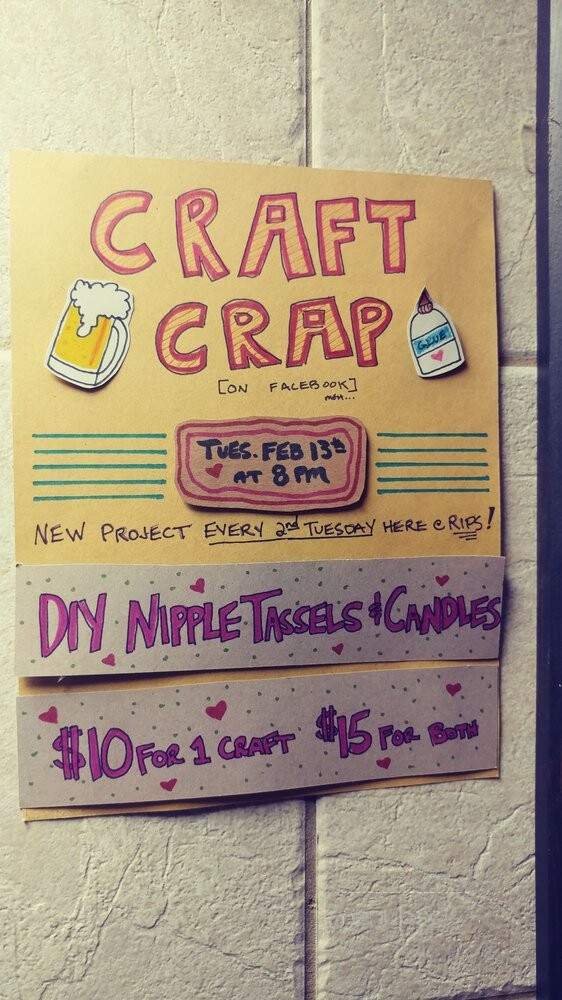 CRAFT
CRAP
GLUE
[ON FACEBOOK]
meh...
TUES. FEB 13th
AT 8 PM
NEW PROJECT EVERY 2nd TUESDAY HERE @ RIPS!
DIY NIPPLE TASSELS & CANDLES
$10 FOR 1 CRAFT $15 FOR BOTH